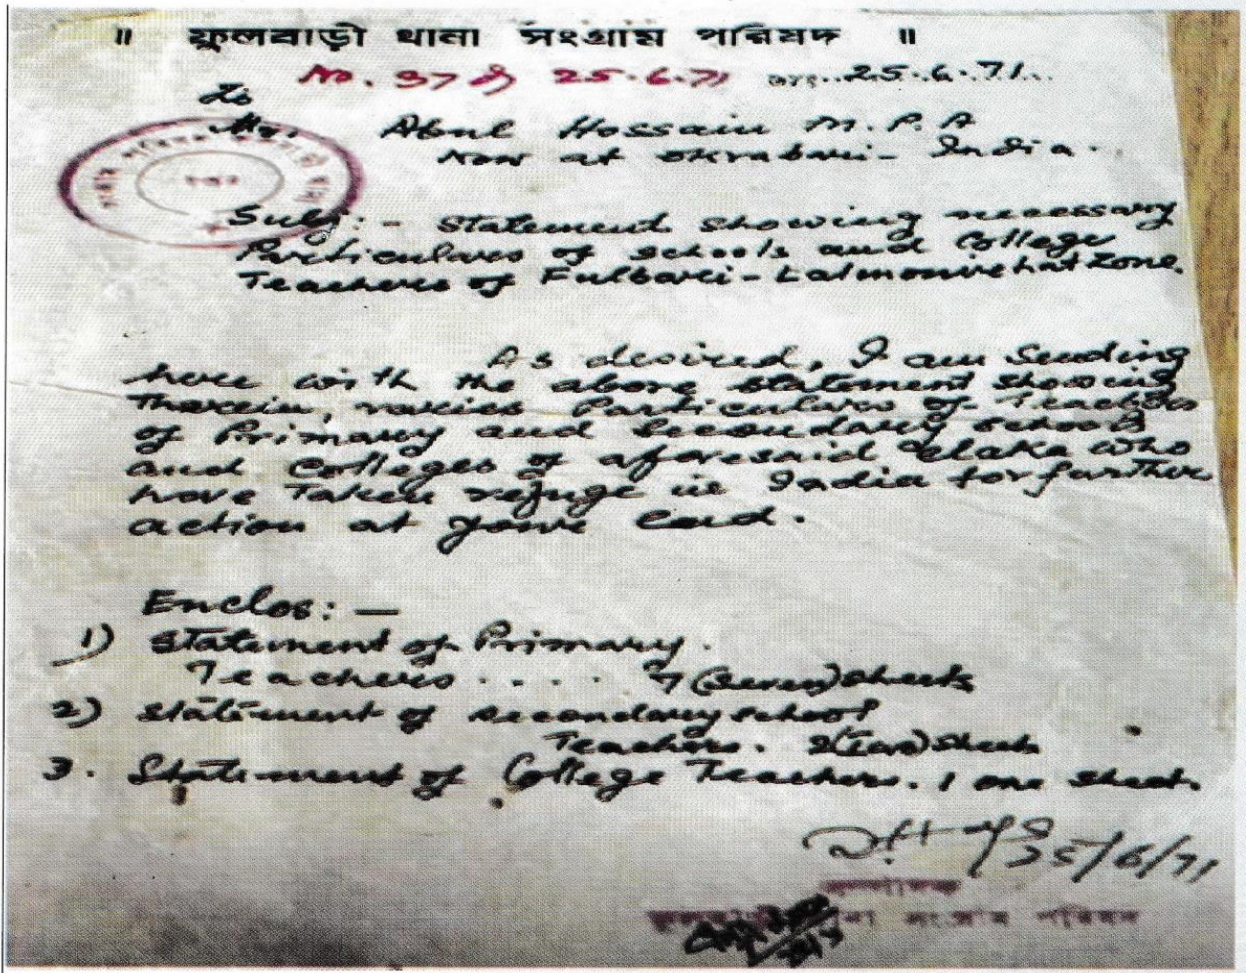 ॥ ফুলবাড়ী থানা সংগ্রাম পরিষদ ॥
No. 37 dt 25.6.71 তাং..25.6.71...
To
Mr. Abul Hossain M.P.A
Now at okrabari- India.
Subj:- Statement showing necessary
Particulars of schools and College
Teachers of Fulbari-Lalmonirhat Zone.
As desired, I am Sending
here with the above statement showing
Therein, Particulars of Teachers
of Primary and Secondary schools
and Colleges of aforesaid elaka who
have Taken refuge in India for further
action at your end.
Enclos: —
1) Statement of Primary.
Teachers .... 7 (Seven) sheets
2) Statement of secondary school
Teachers. 2(two) sheets
3. Statement of College Teachers. 1 one sheet.
25/6/71
সংগ্রাম পরিষদ